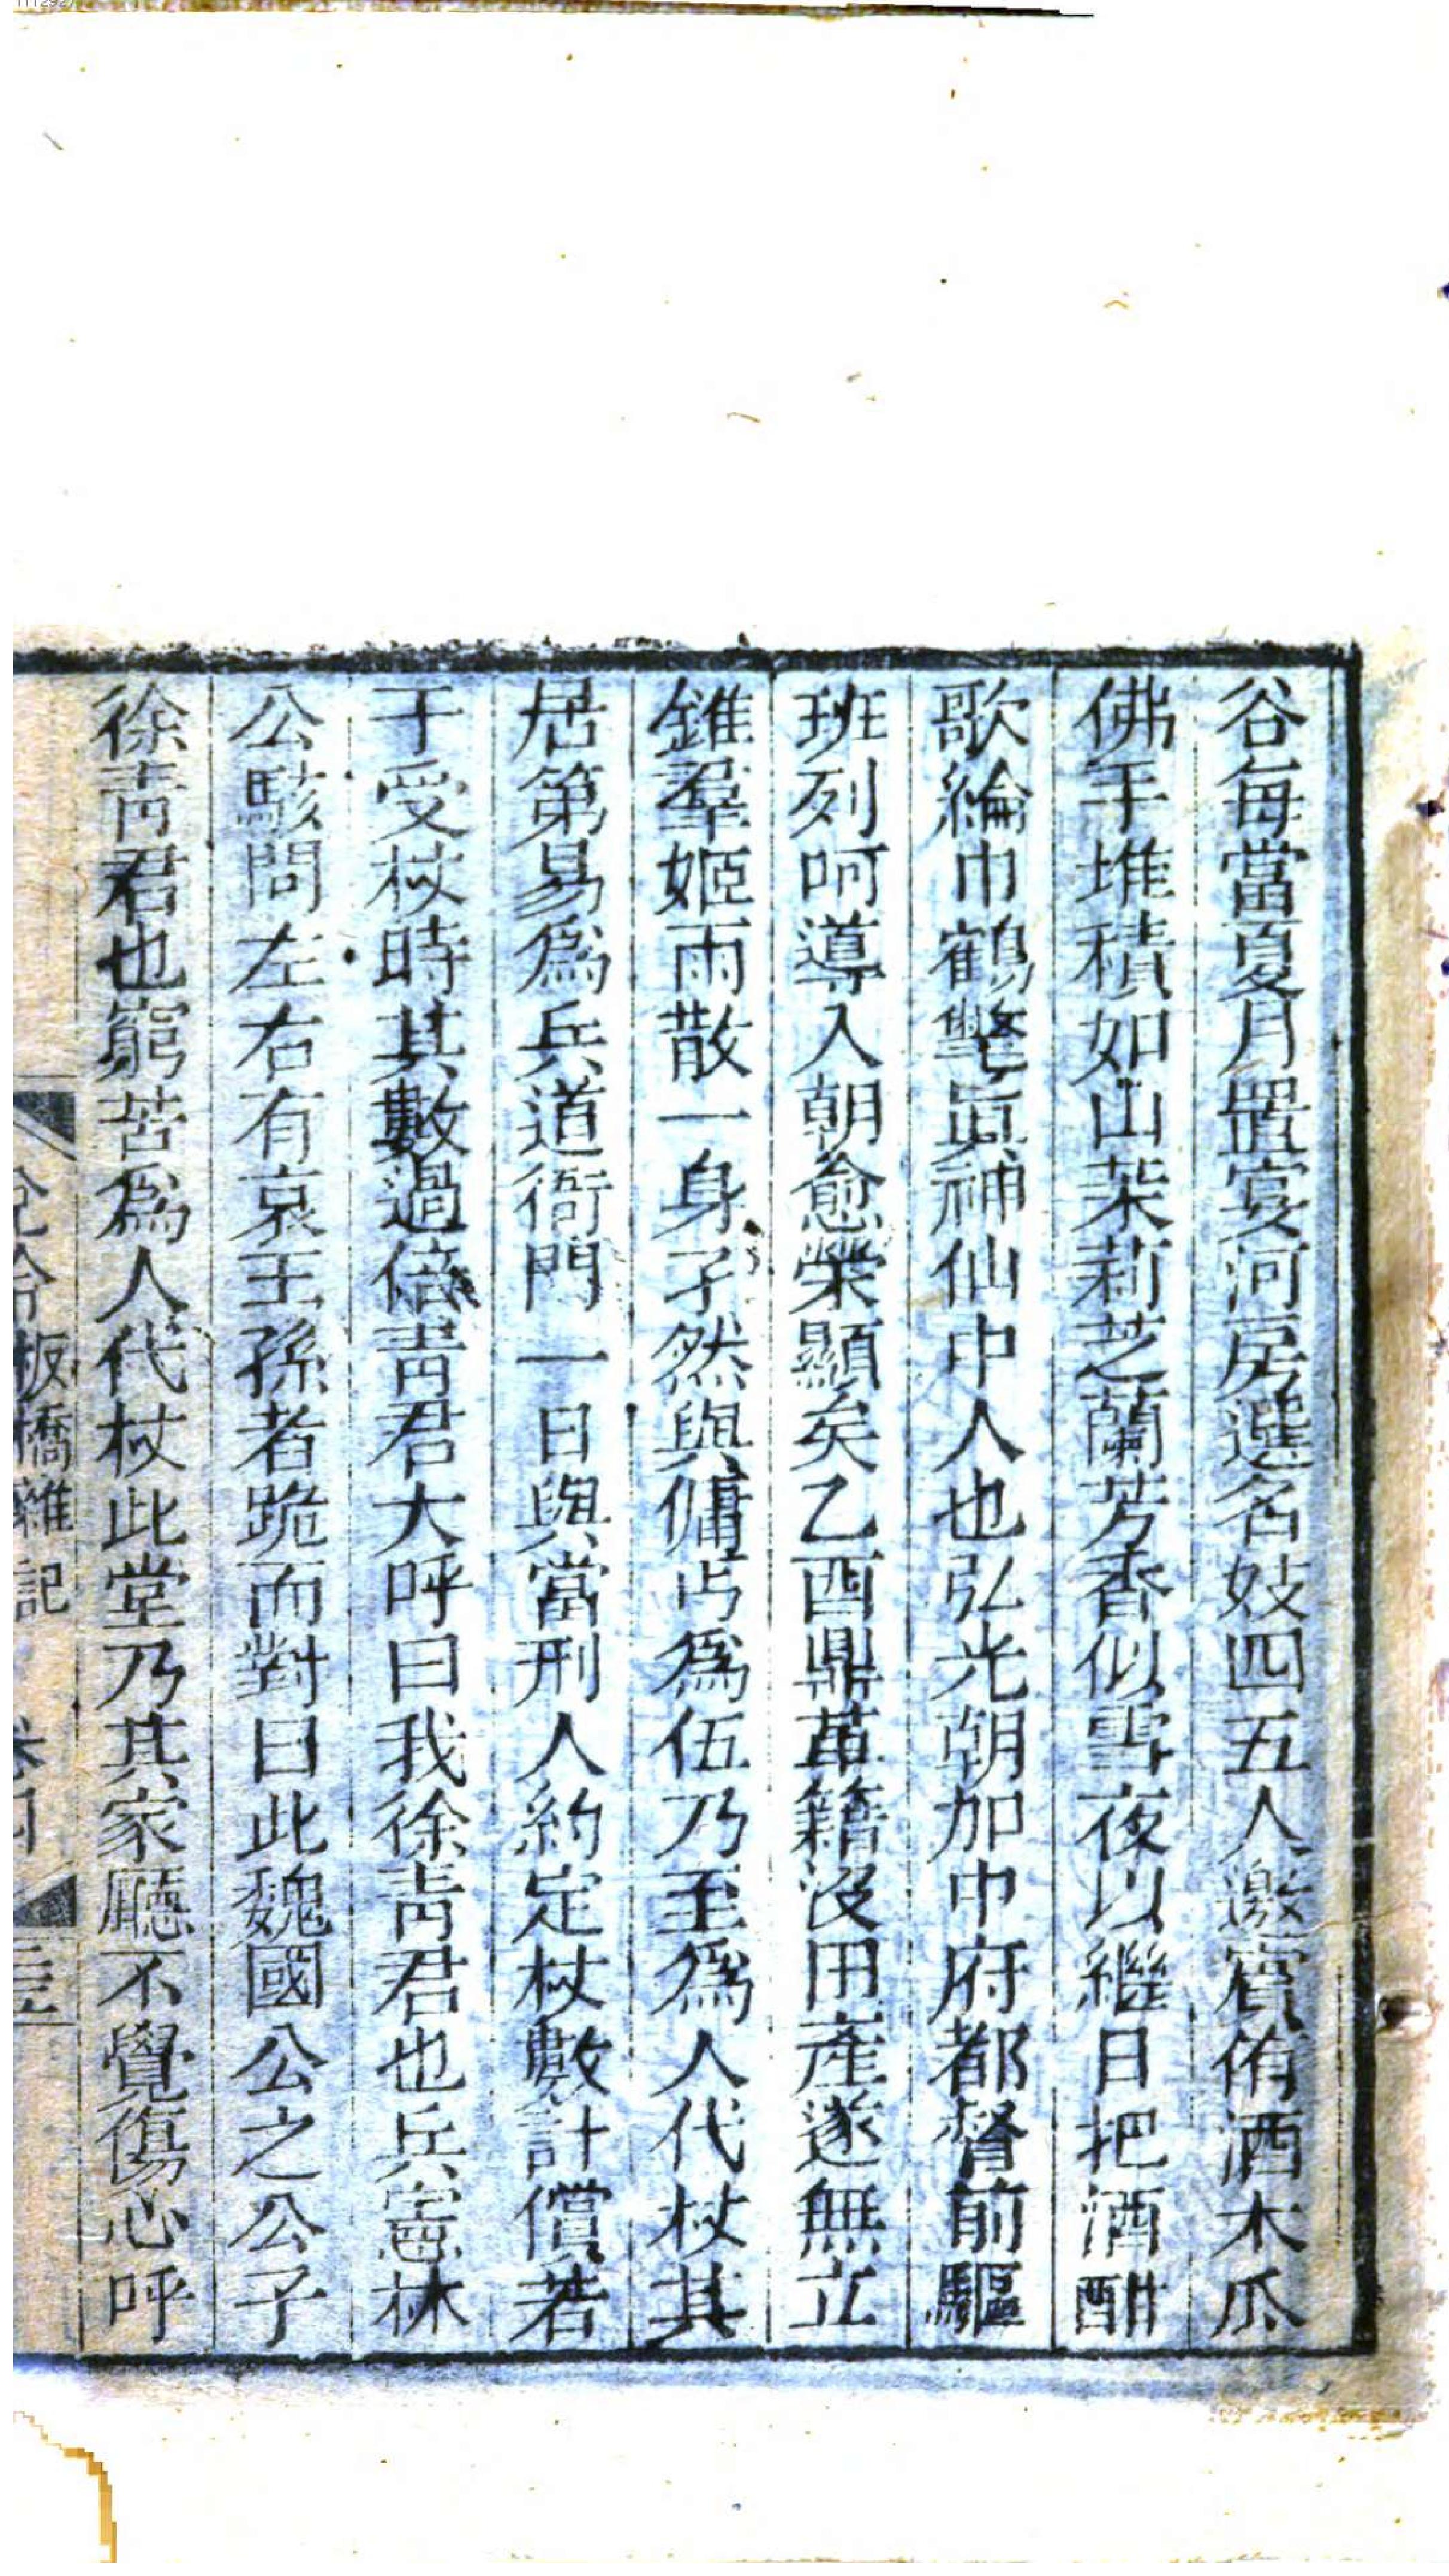 谷每當夏月置宴河房選名妓四五人邀賓侑酒木瓜
佛手堆積如山茉莉芝蘭芳香似雪夜以繼日把酒酣
歌綸巾鶴氅眞神仙中人也弘光朝加中府都督前驅
班列呵導入朝愈榮顯矣乙酉鼎革籍沒田產遂無立
錐羣姬雨散一身孑然與傭丐爲伍乃至爲人代杖其
居第易爲兵道衙門一日與當刑人約定杖數計償若
干受杖時其數過倍靑君大呼曰我徐靑君也兵憲林
公駭問左右有哀王孫者跪而對曰此魏國公之公子
徐靑君也窮苦爲人代杖此堂乃其家廳不覺傷心呼
板橋雜記